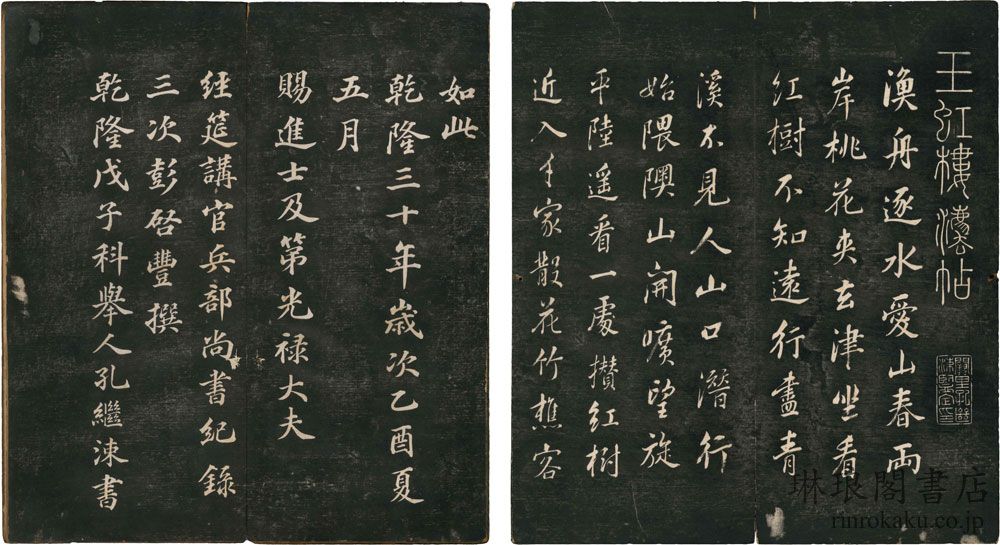 玉虹樓灋帖
漁舟逐水愛山春兩
岸桃花夾去津坐看
紅樹不知遠行盡青
溪不見人山口潛行
始隈隩山開曠望旋
平陸遥看一處攅紅樹
近入千家散花竹樵客
如此
乾隆三十年歲次乙酉夏
五月
賜進士及第光祿大夫
經筵講官兵部尚書紀錄
三次彭啓豐撰
乾隆戊子科舉人孔繼涑書
琳琅閣書店
rinrokaku.co.jp